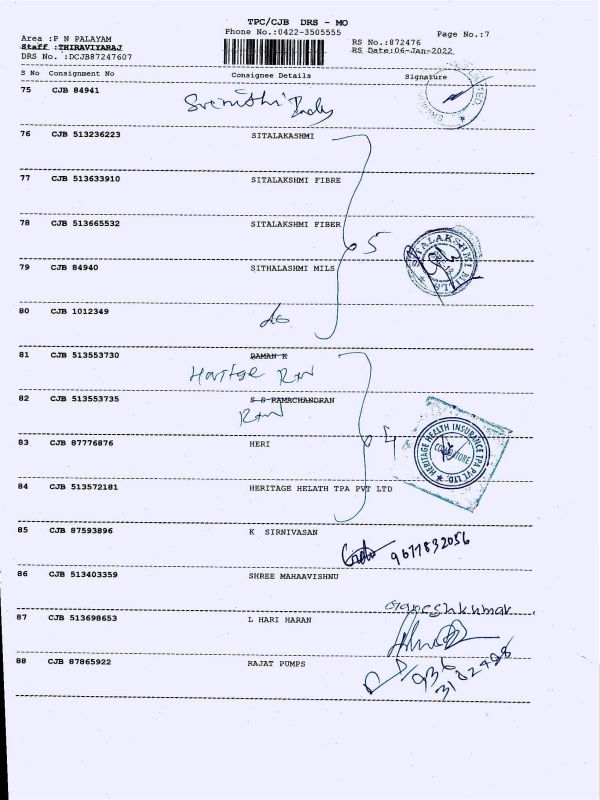 TPC/CJB DRS - MO
Phone No.:0422-3505555
Page No.:7
Area :P N PALAYAM
Staff :THIRAVIYARAJ
DRS No. :DCJB87247607
RS No.:872476
RS Date:06-Jan-2022
S No Consignment No Consignee Details Signature
75 CJB 84941
76 CJB 513236223 SITALAKASHMI
77 CJB 513633910 SITALAKSHMI FIBRE
78 CJB 513665532 SITALAKSHMI FIBER
5
SITALAKSHMI MILLS
79 CJB 84940 SITHALASHMI MILS
80 CJB 1012349
81 CJB 513553730 RAMAN K
82 CJB 513553735 S S RAMACHANDRAN
83 CJB 87776876 HERI
4
HERITAGE HEALTH INSURANCE TPA PVT LTD
COIMBATORE
84 CJB 513572181 HERITAGE HELATH TPA PVT LTD
85 CJB 87593896 K SIRNIVASAN
9677832056
86 CJB 513403359 SHREE MAHAAVISHNU
Ganeshkumar
87 CJB 513698653 L HARI HARAN
88 CJB 87865922 RAJAT PUMPS